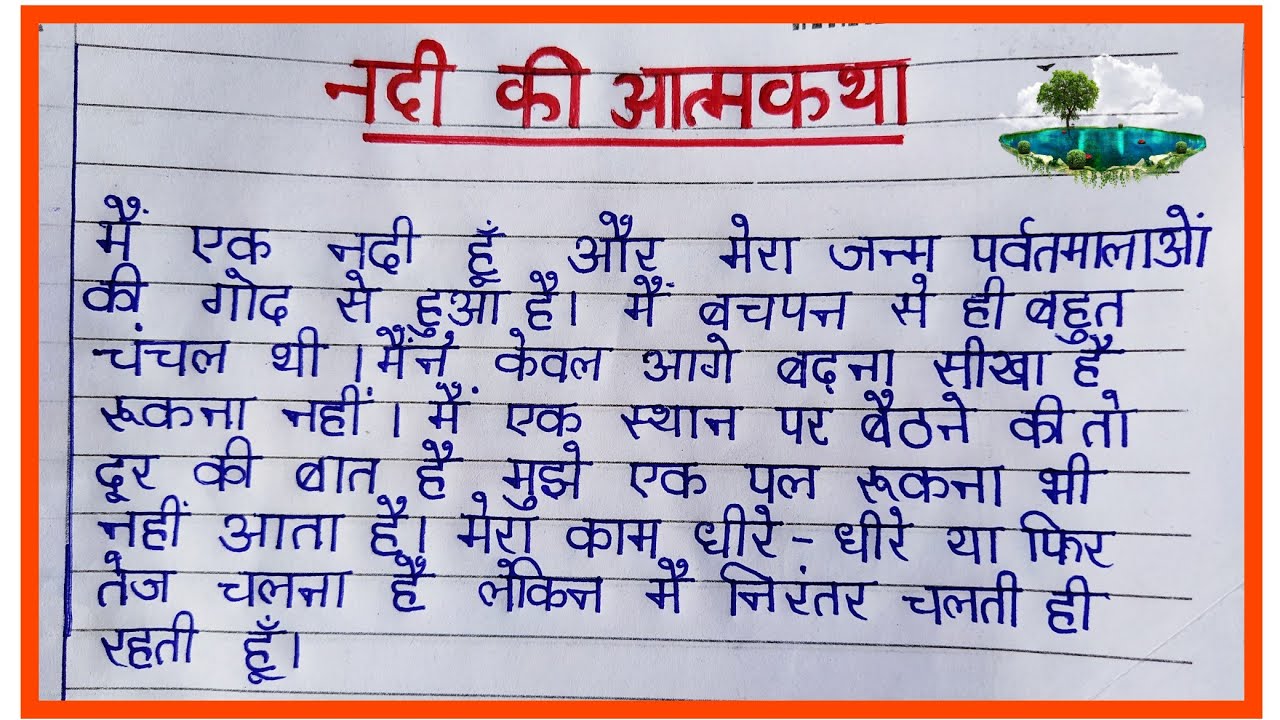 नदी की आत्मकथा
मैं एक नदी हूँ और मेरा जन्म पर्वतमालाओं
की गोद से हुआ है। मैं बचपन से ही बहुत
चंचल थी । मैंने केवल आगे बढ़ना सीखा है
रूकना नहीं । मैं एक स्थान पर बैठने की तो
दूर की बात है मुझे एक पल रूकना भी
नहीं आता है। मेरा काम धीरे - धीरे या फिर
तेज चलना है लेकिन मै निरंतर चलती ही
रहती हूँ।